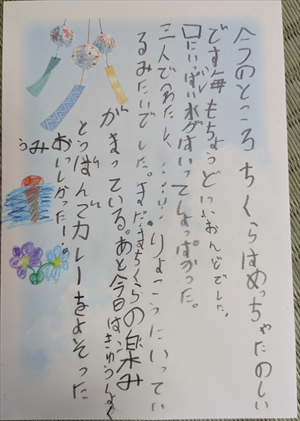 今のところちくらはめっちゃたのしい
です海もちょうどいいおんどでした。
口にいっぱい水がはいってしょっぱかった。
三人であたしん、……りょこうにいってい
るみたいでした。まだまだちくらの楽み
がまっている。あと今日はきゅうしょく
とうばんでカレーをよそった
おいしかったー。
うみ